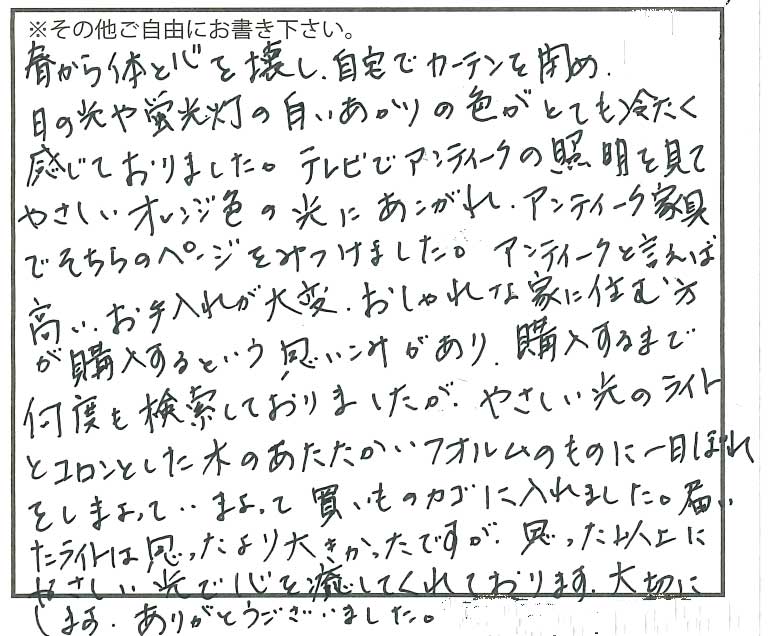 ※その他ご自由にお書き下さい。
春から体と心を壊し、自宅でカーテンを閉め、
日の光や蛍光灯の白いあかりの色がとても冷たく
感じておりました。テレビでアンティークの照明を見て
やさしいオレンジ色の光にあこがれ、アンティーク家具
でそちらのページをみつけました。アンティークと言えば
高い、お手入れが大変、おしゃれな家に住む方
が購入するという思いこみがあり、購入するまで
何度も検索しておりましたが、やさしい光のライト
とコロンとした木のあたたかいフォルムのものに一目ぼれ
をしまよって‥まよって買いものカゴに入れました。届い
たライトは思ったより大きかったですが、思った以上に
やさしい光で心を癒してくれております。大切に
します。ありがとうございました。